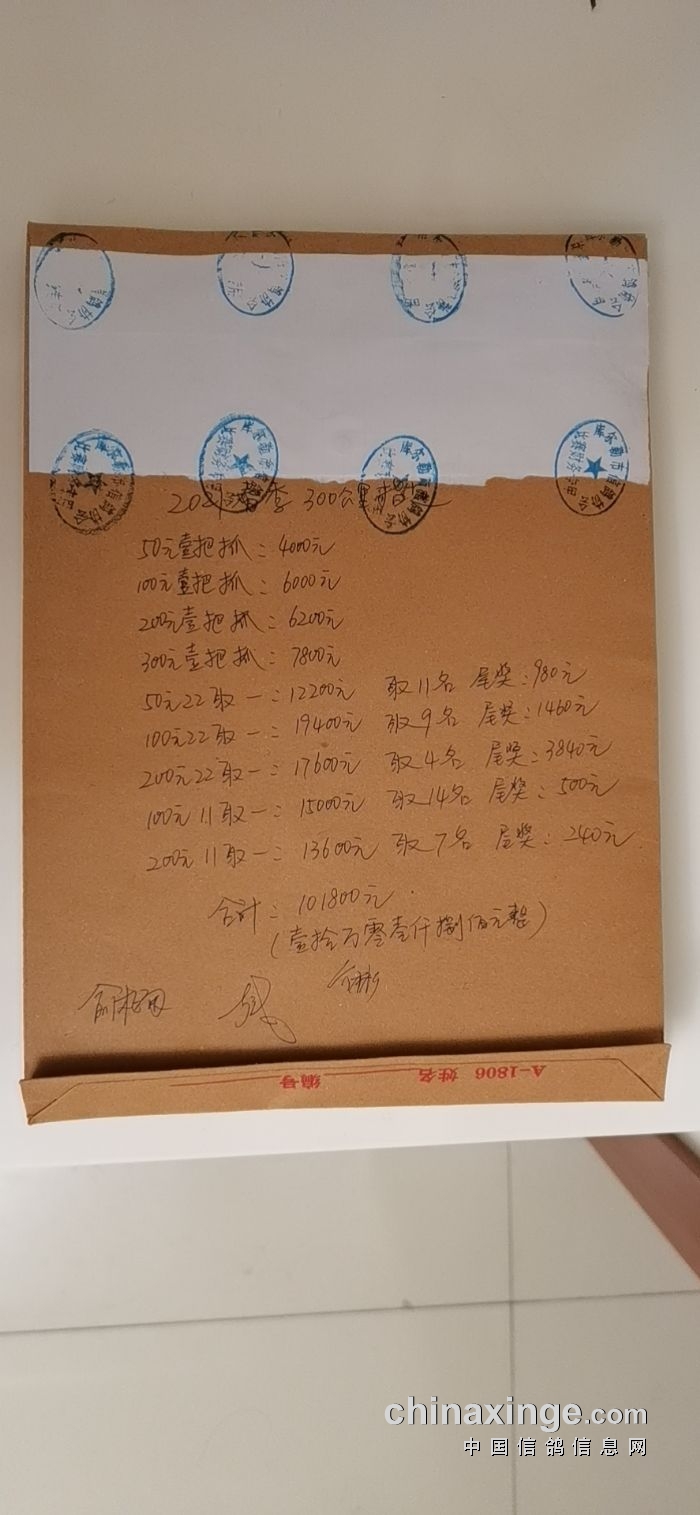 库尔勒市信鸽协会
比赛财务专用
2021 秋季 300公里
50元壹把抓：4000元
100元壹把抓：6000元
200元壹把抓：6200元
300元壹把抓：7800元
50元22取一：12200元 取11名 尾奖：980元
100元22取一：19400元 取9名 尾奖：1460元
200元22取一：17600元 取4名 尾奖：3840元
100元11取一：15000元 取14名 尾奖：500元
200元11取一：13600元 取7名 尾奖：240元
合计：101800元
（壹拾万零壹仟捌佰元整）
A-1806 姓名 编号
chinaxinge.com
中国信鸽信息网